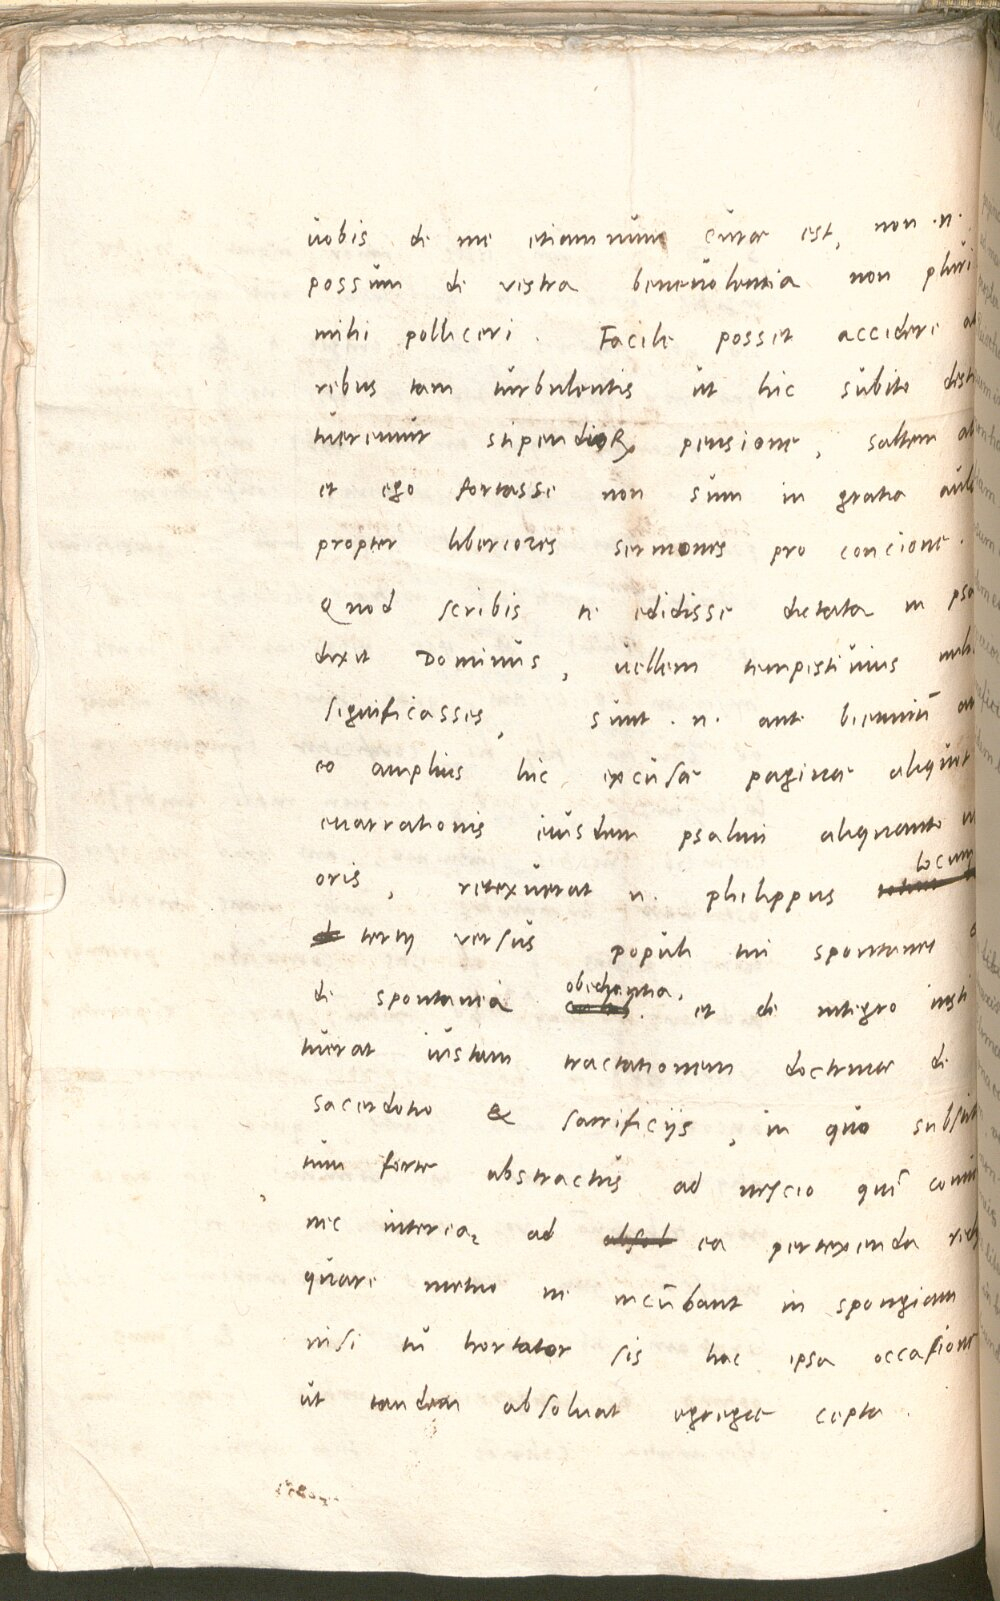 vobis de me etiamnum curae est, non .n.
possum de vestra benevolentia non pluri
mihi polliceri. Facile posset accidere
rebus tam turbulentis ut hic subito desti
tueremur stipendioꝝ pensione, saltem
et ego fortasse non sum in gratia aul
propter liberiores sermones pro concione.
Quod scribis te edidisse dictata in psa
dixit Dominus, vellem tempestivius
significasses, sunt .n. ante bienniū
eo amplius hic excusae paginae aliquot
enarrationis eiusdem psalmi aliquanto
oris, retexuerat n. philippus locum
tertij versus populi tui spontanei
de spontanea obedientia, et de integro insti
tuerat iustam tractationem doctrinae de
sacerdotio & sacrificijs, in quo
tum forte abstractus ad nescio
nec interea ad ea pertexenda
quare metuo ne incūbant in spongiam
nisi tu hortator sis hac ipsa occasione
ut tandem absoluat egregie cepta.